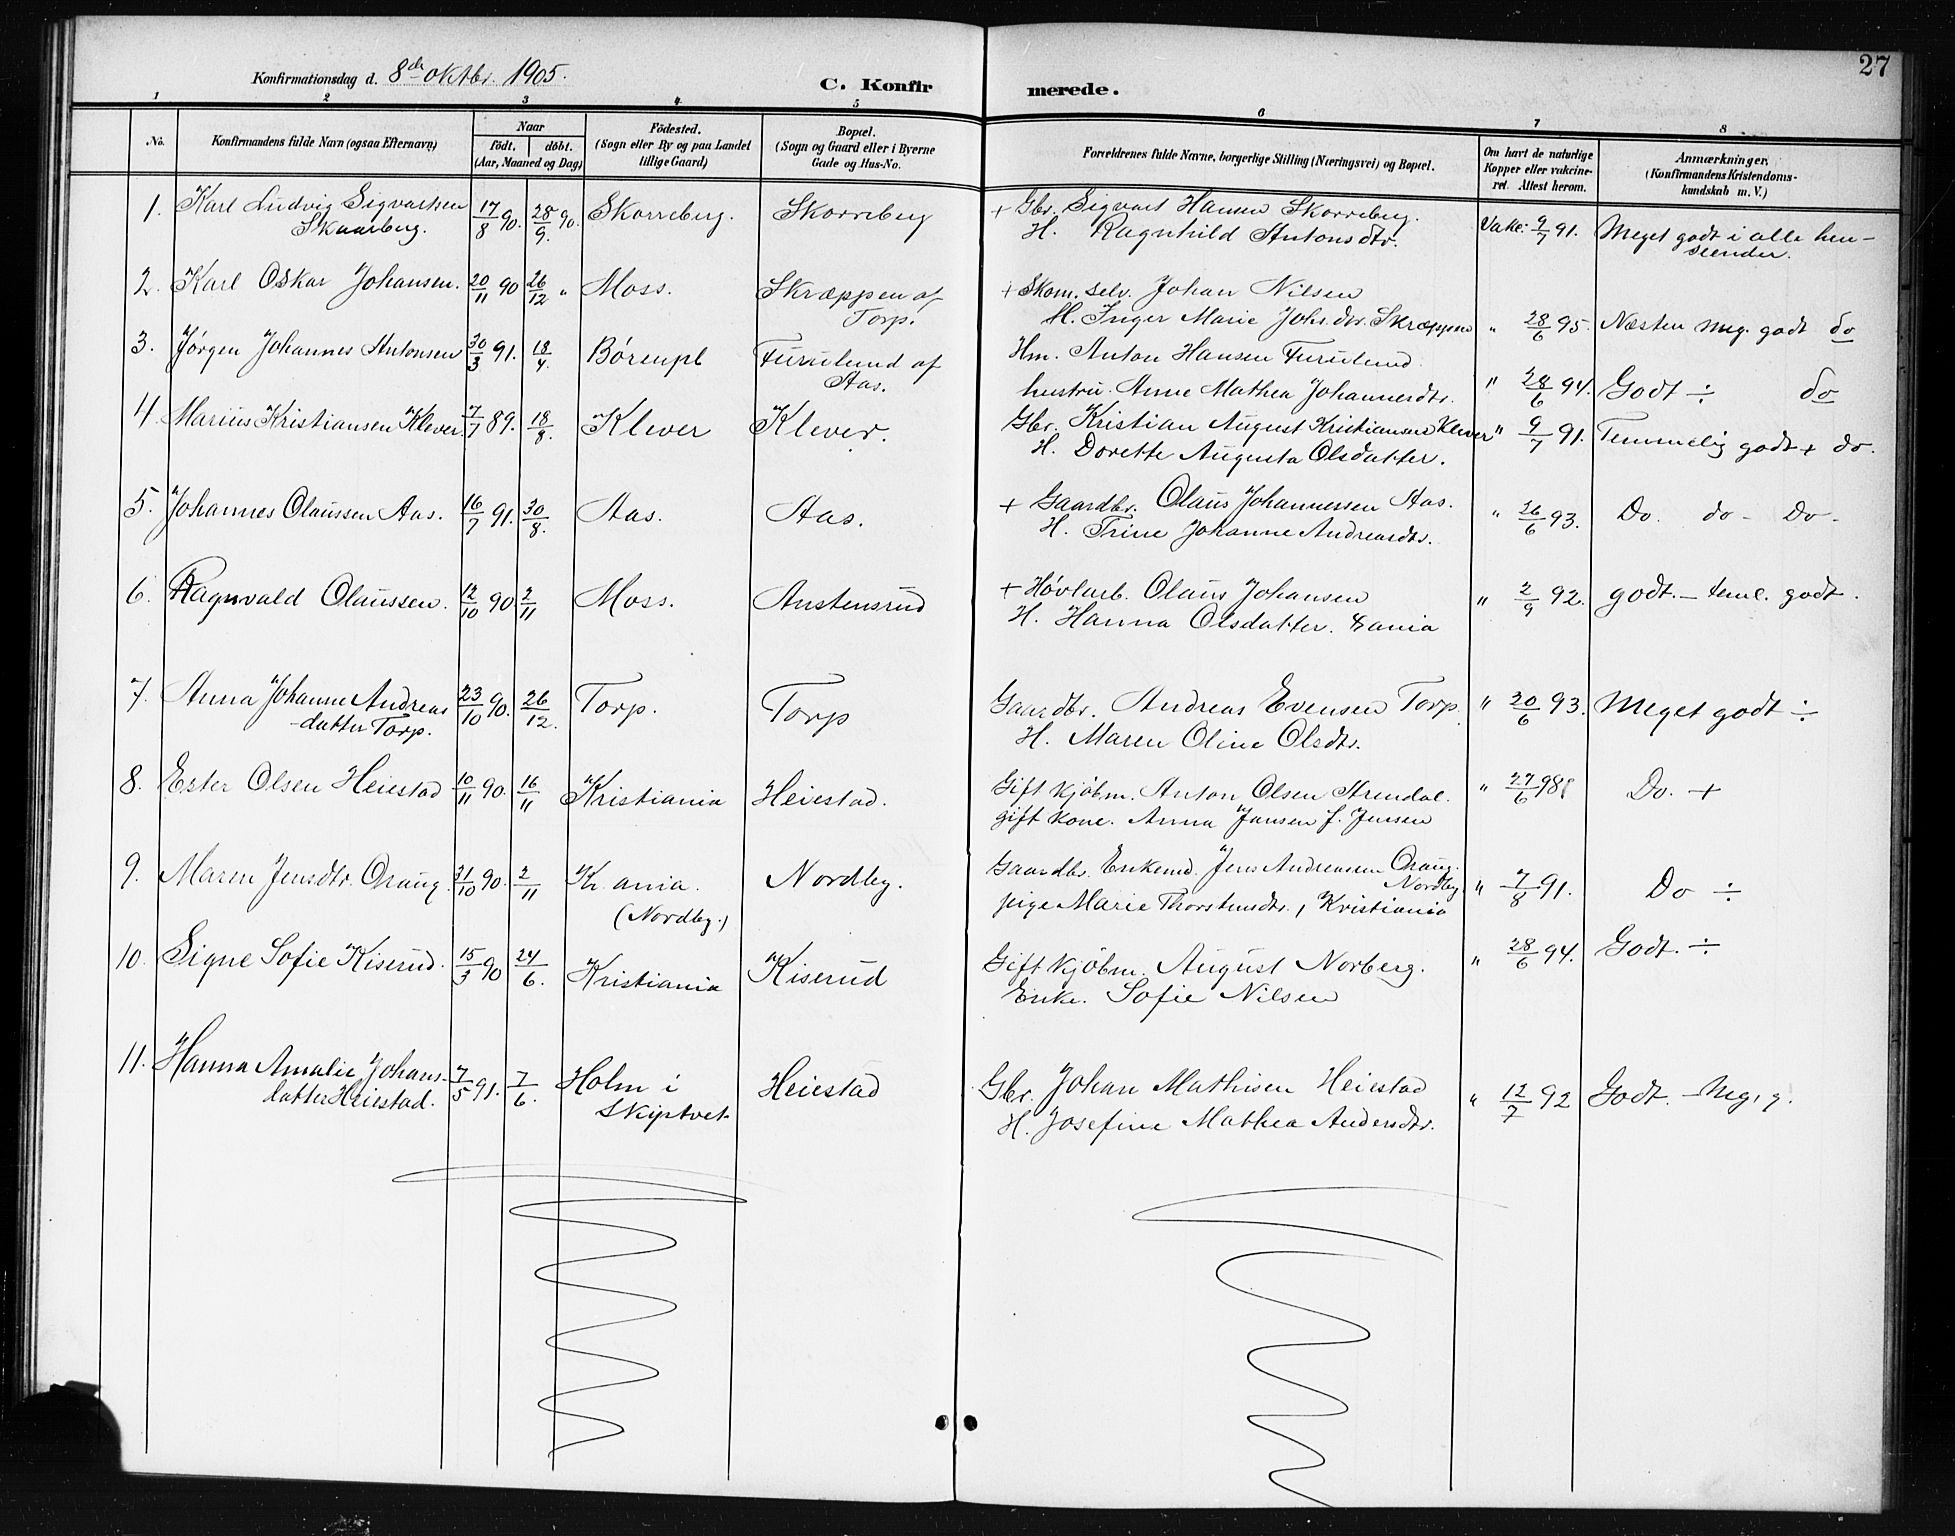 27
Konfirmationsdag d. 8de oktbr. 1905.
C. Konfirmerede.
1 2 3 4 5 6 7 8
No.
Konfirmandens fulde Navn (ogsaa Efternavn)
Naar
født. døbt.
(Aar, Maaned og Dag)
Fødested.
(Sogn eller By og paa Landet
tillige Gaard)
Bopæl.
(Sogn og Gaard eller i Byerne
Gade og Hus-No.
Forældrenes fulde Navne, borgerlige Stilling (Næringsvei) og Bopæl.
Om havt de naturlige
Kopper eller vakcine-
ret. Attest herom.
Anmærkninger.
(Konfirmandens Kristendoms-
kundskab m. V.)
1. Karl Ludvig Sigvartsen 17/8 90. 28/9 90. Skorreberg. Skorreberg + Gbr. Sigvart Hansen Skorreberg. Vakc: 9/7 91. Meget godt i alle hen-
Skaarberg. H. Ragnhild Antonsdtr. seender.
2. Karl Oskar Johansen. 20/11 90 26/12 " Moss. Skræppen af + Skom. selv. Johan Nilsen
Torp. H. Inger Marie Johs.dtr. Skræppen " 28/6 95. Næsten meg. godt do
3. Jørgen Johannes Antonsen 30/3 91. 18/4. Børenpl Furulund af Hm. Anton Hansen Furulund
Aas. hustru. Anne Mathea Johannesdtr. " 28/6 94. Godt ÷ do
4. Marius Kristiansen Klever 7/7 89. 18/8. Klever Klever. Gbr. Kristian August Kristiansen Klever " 9/7 91. Temmelig godt + do.
H. Dorette Augusta Olsdatter.
5. Johannes Olaussen Aas. 16/7 91. 30/8. Aas. Aas. + Gaardbr. Olaus Johannessen Aas. " 26/6 93. Do. do - Do -
H. Trine Johanne Andreasdtr.
6. Ragnvald Olaussen. 12/10 90 2/11 Moss. Austensrud + Høvlarb. Olaus Johansen " 2/9 92. godt. - teml. godt.
H. Hanna Olsdatter.
7. Anna Johanne Andreas 23/10 90. 26/12. Torp. Torp Gaardbr. Andreas Evensen Torp. " 20/6 93. Meget godt ÷
-datter Torp. H. Maren Oline Olsdtr.
8. Ester Olsen Heiestad 10/11 90. 16/11 Kristiania Heiestad. Gift Kjøbm. Anton Olsen Strendal. " 27/6 98 Do. +
gift kone. Anna Jansen f. Jensen
9. Maren Jensdtr. Oraug. 31/10 90. 2/11 Kr. ania. Nordby. Gaardbr. Enkemd. Jens Andreassen Oraug. " 7/8 91. Do ÷
Nordby
(Nordby.) pige Marie Thorstensdtr., Kristiania
10. Signe Sofie Kiserud. 15/3 90 24/6. Kristiania Kiserud Gift Kjøbm. August Norberg. " 28/6 94. Godt. ÷
Enke. Sofie Nilsen
11. Hanna Amalie Johans- 7/5 91. 7/6. Holm i Heiestad Gbr. Johan Mathisen Heiestad " 12/7 92 Godt. - Meg. g.
datter Heiestad. Skiptvet H. Josefine Mathea Andersdtr.